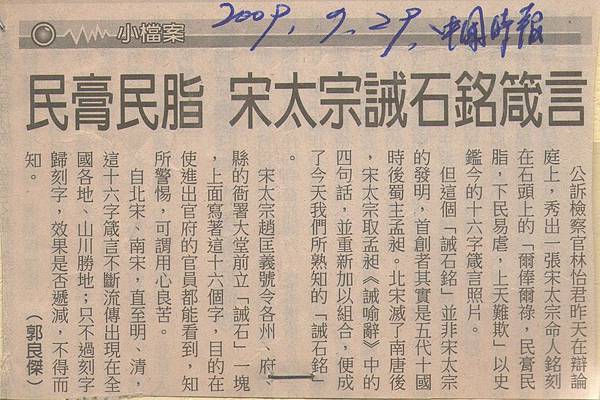 2009, 9, 29, 中國時報
小檔案
民膏民脂 宋太宗誡石銘箴言
公訴檢察官林怡君昨天在辯論
庭上，秀出一張宋太宗命人銘刻
在石頭上的「爾俸爾祿，民膏民
脂，下民易虐，上天難欺」以史
鑑今的十六字箴言照片。
但這個「誡石銘」並非宋太宗
的發明，首創者其實是五代十國
時後蜀主孟昶。北宋滅了南唐後
，宋太宗取孟昶《誡喻辭》中的
四句話，並重新加以組合，便成
了今天我們所熟知的「誡石銘」
。
宋太宗趙匡義號令各州、府、
縣的衙署大堂前立「誡石」一塊
，上面寫著這十六個字，目的在
使進出官府的官員都能看到，知
所警惕，可謂用心良苦。
自北宋、南宋，直至明、清，
這十六字箴言不斷流傳出現在全
國各地、山川勝地；只不過刻字
歸刻字，效果是否遞減，不得而
知。
（郭良傑）